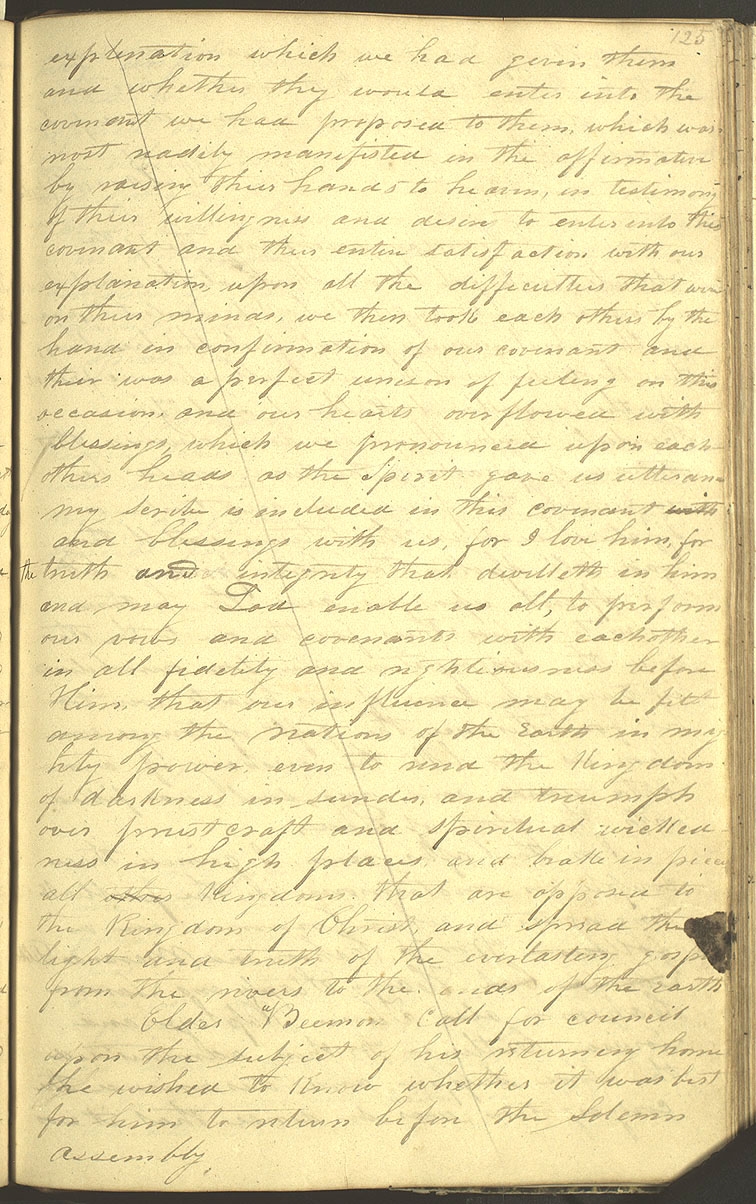 125
explenation which we had given them
and whether they would enter into the
covenant we had proposed to them, which was
most readily manefisted in the affirmative
by raising their hands to heaven, in testimony
of their willingness and desire to enter into this
covenant and their entire satisfaction with our
explanation, upon all the difficulties that were
on their minds, we then took each others by the
hand in confirmation of our covenant and
their was a perfect unison of feeling on this
occasion, and our hearts overflowed with
blessings, which we pronounced upon each
others heads as the Spirit gave us utteran
my scribe is included in this covenant with
and blessings with us, for I love him, for
the truth and integrity that dwelleth in him
and may God enable us all, to perform
our vows and covenants with each other
in all fidelity and rightiousness before
Him, that our influence may be felt
among the nations of the earth in mig
hty power, even to rend the Kingdom
of darkness in sunder, and triumph
over priestcraft and spiritual wicked-
ness in high places, and brake in pieces
all other Kingdoms that are opposed to
the Kingdom of Christ, and spread the
light and truth of the everlasting gospel
from the rivers to the ends of the earth
Elder Beemon call for council
upon the subject of his returning home
he wished to know whether it was best
for him to return before the Solemn
assembly,